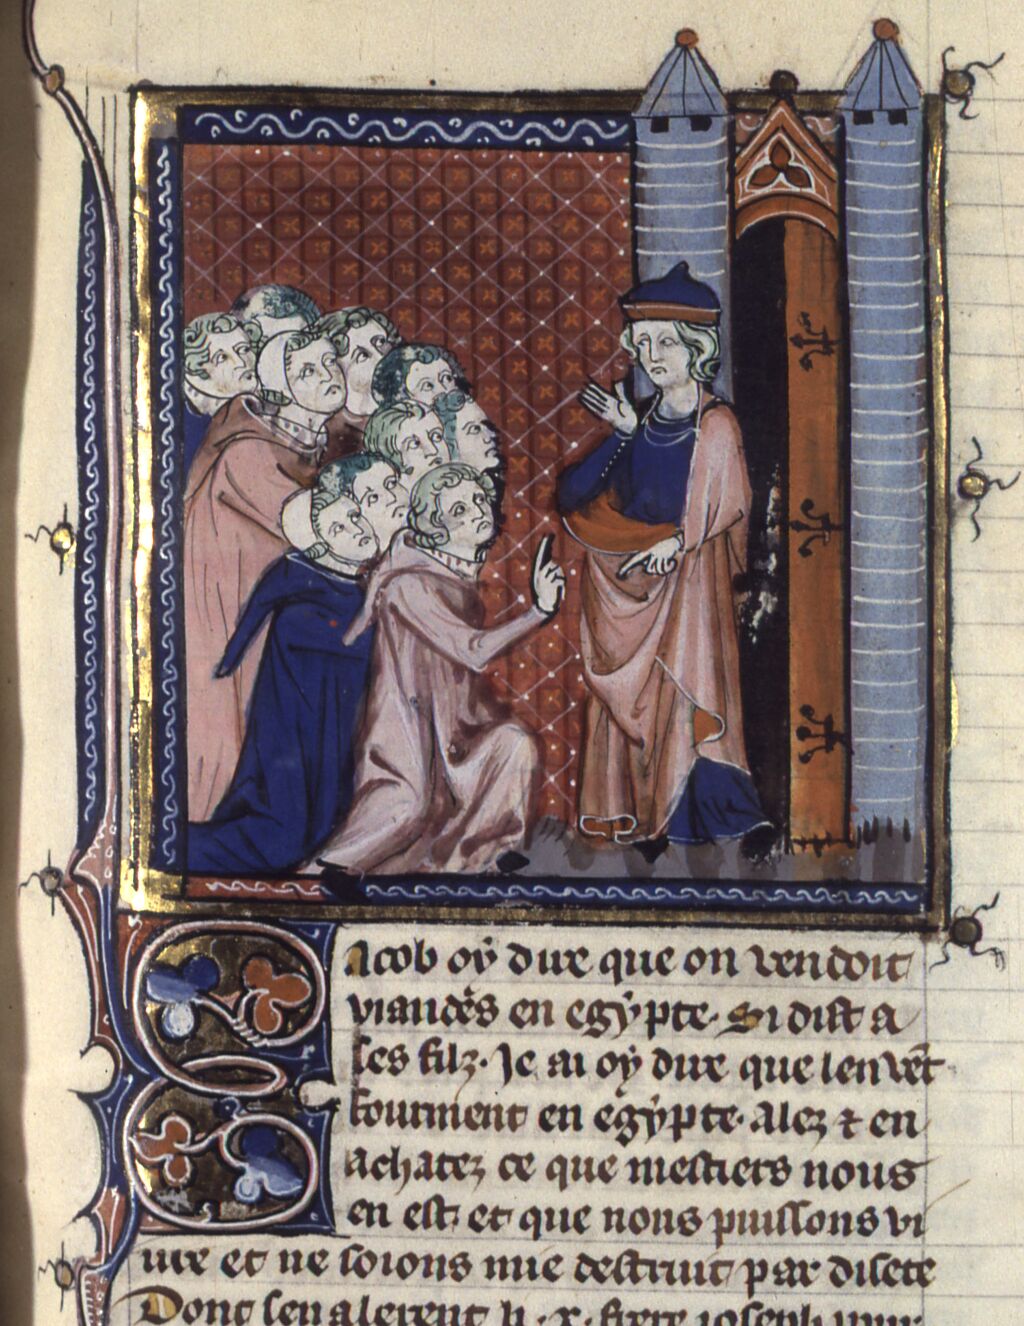 Jacob oÿ dire que on vendoit
viandes en egÿpte. Si dist a
ses filz. Je ai oÿ dire que len vēt
fourment en egÿpte. alez ⁊ en
achatez ce que mestiers nous
en est. et que nous puissons vi
ure et ne soions mie destruit par disete
Dont sen alerent li .x. frere ioseph